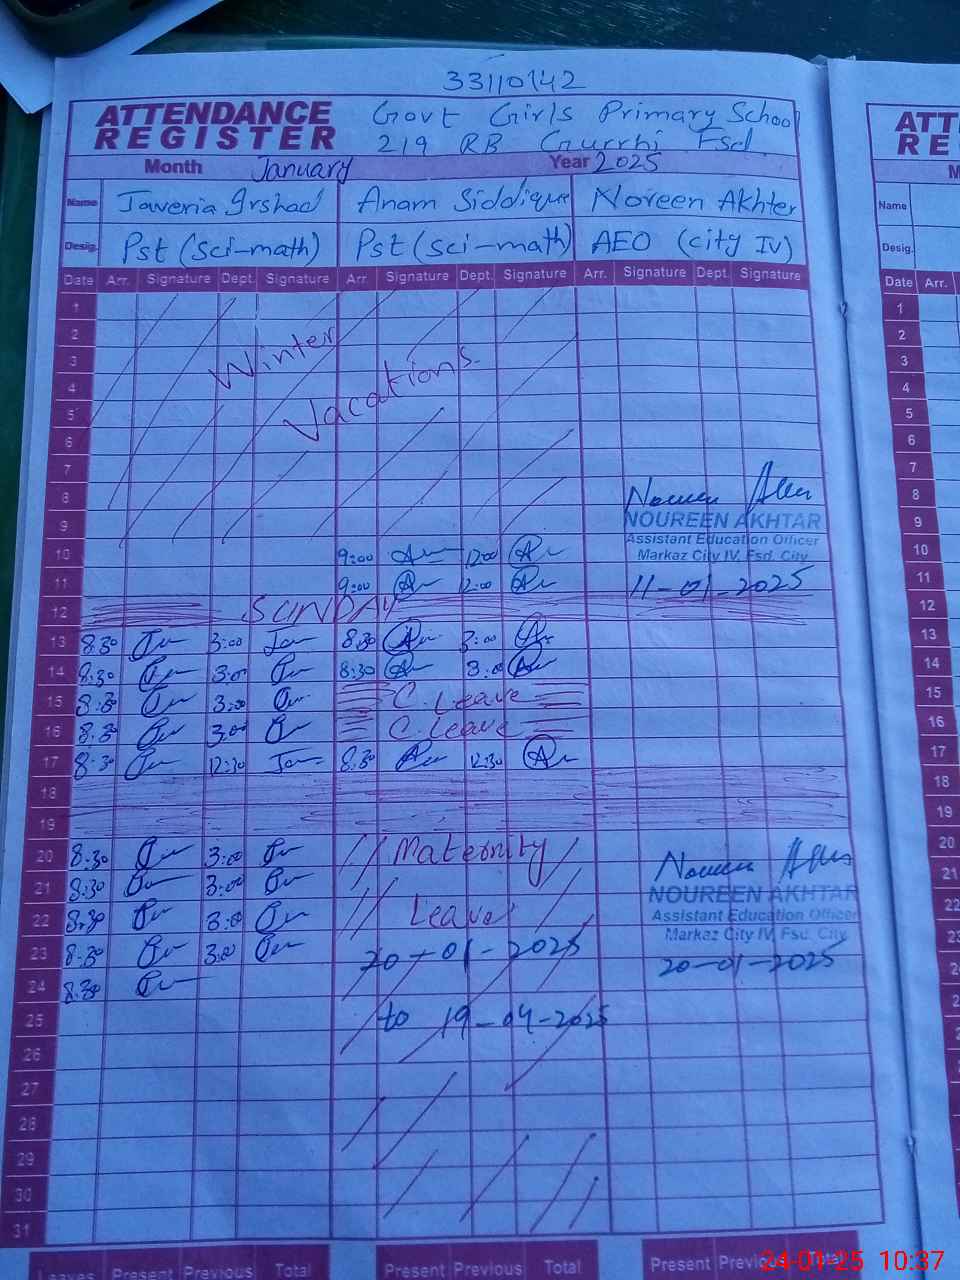 33110142
ATTENDANCE REGISTER
Govt Girls Primary School
219 RB Gurrhi Fsd.
Month January Year 2025
Name Javeria Irshad Anam Siddique Noreen Akhter
Desig. Pst (sci-math) Pst (sci-math) AEO (city IV)
Date Arr. Signature Dept. Signature Arr Signature Dept. Signature Arr. Signature Dept. Signature
1
2
3 Winter
4 Vacations.
5
6
7
8
9 NOUREEN AKHTAR
Assistant Education Officer
10 9:00 12:00 Markaz City IV, Fsd. City
11 9:00 2:00 11-01-2025
12 SUNDAY
13 8:30 3:00 8:30 3:00
14 8:30 3:00 8:30 3:00
15 8:30 3:00 C. Leave
16 8:30 3:00 C. Leave
17 8:30 12:30 8:30 12:30
18
19
20 8:30 3:00 Maternity
21 8:30 3:00 NOUREEN AKHTAR
22 8:30 3:00 Leave Assistant Education Officer
Markaz City IV, Fsd. City
23 8:30 3:00 20-01-2025 20-01-2025
24 8:30
25 to 19-04-2025
26
27
28
29
30
31
Leaves Present Previous Total Present Previous Total Present Previous Total
ATT
RE
M
Name
Desig.
Date Arr.
1
2
3
4
5
6
7
8
9
10
11
12
13
14
15
16
17
18
19
20
21
22
23
24-01-25 10:37